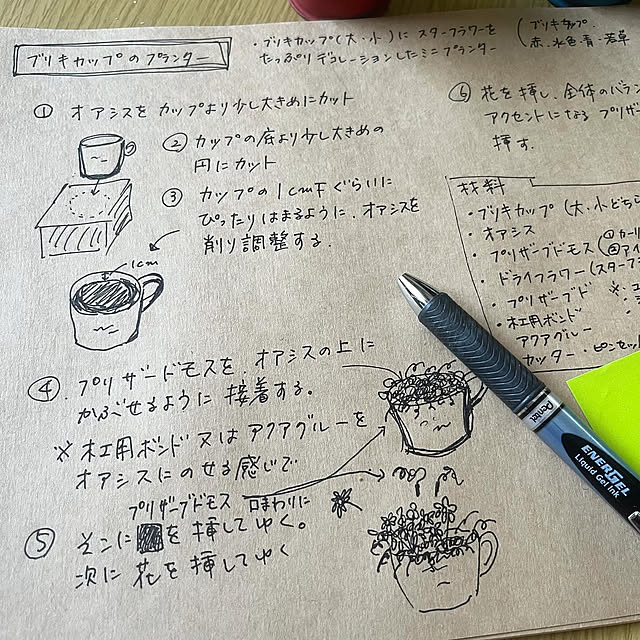 ブリキカップのプランター
・ブリキカップ(大・小)に スターフラワーを
たっぷり デコレーションしたミニプランター
(ブリキカップ.
赤.水色・青・若草
① オアシスを カップより少し大きめにカット
② カップの底より少し大きめの
円にカット
③ カップの1cm下ぐらいに
ぴったりはまるように、オアシスを
削り調整する.
1cm
④ プリザードモスを、オアシスの上に
かぶせるように 接着する。
※ 木工用ボンド 又は アクアグルーを
オアシスにのせる感じで
プリザーブドモス 口まわりに
⑤ そこに を 挿してゆく。
次に 花を 挿してゆく
⑥ 花を 挿し、全体のバラン
アクセントになる プリザー
挿す.
材料
・ブリキカップ (大・小どちら
・オアシス
・プリザーブドモス (①カーリ
②アイ
・ドライフラワー(スターフ
・プリザーブド
・木工用ボンド
アクアグルー
カッター・ピンセット
Pentel
ENERGEL
Liquid Gel Ink